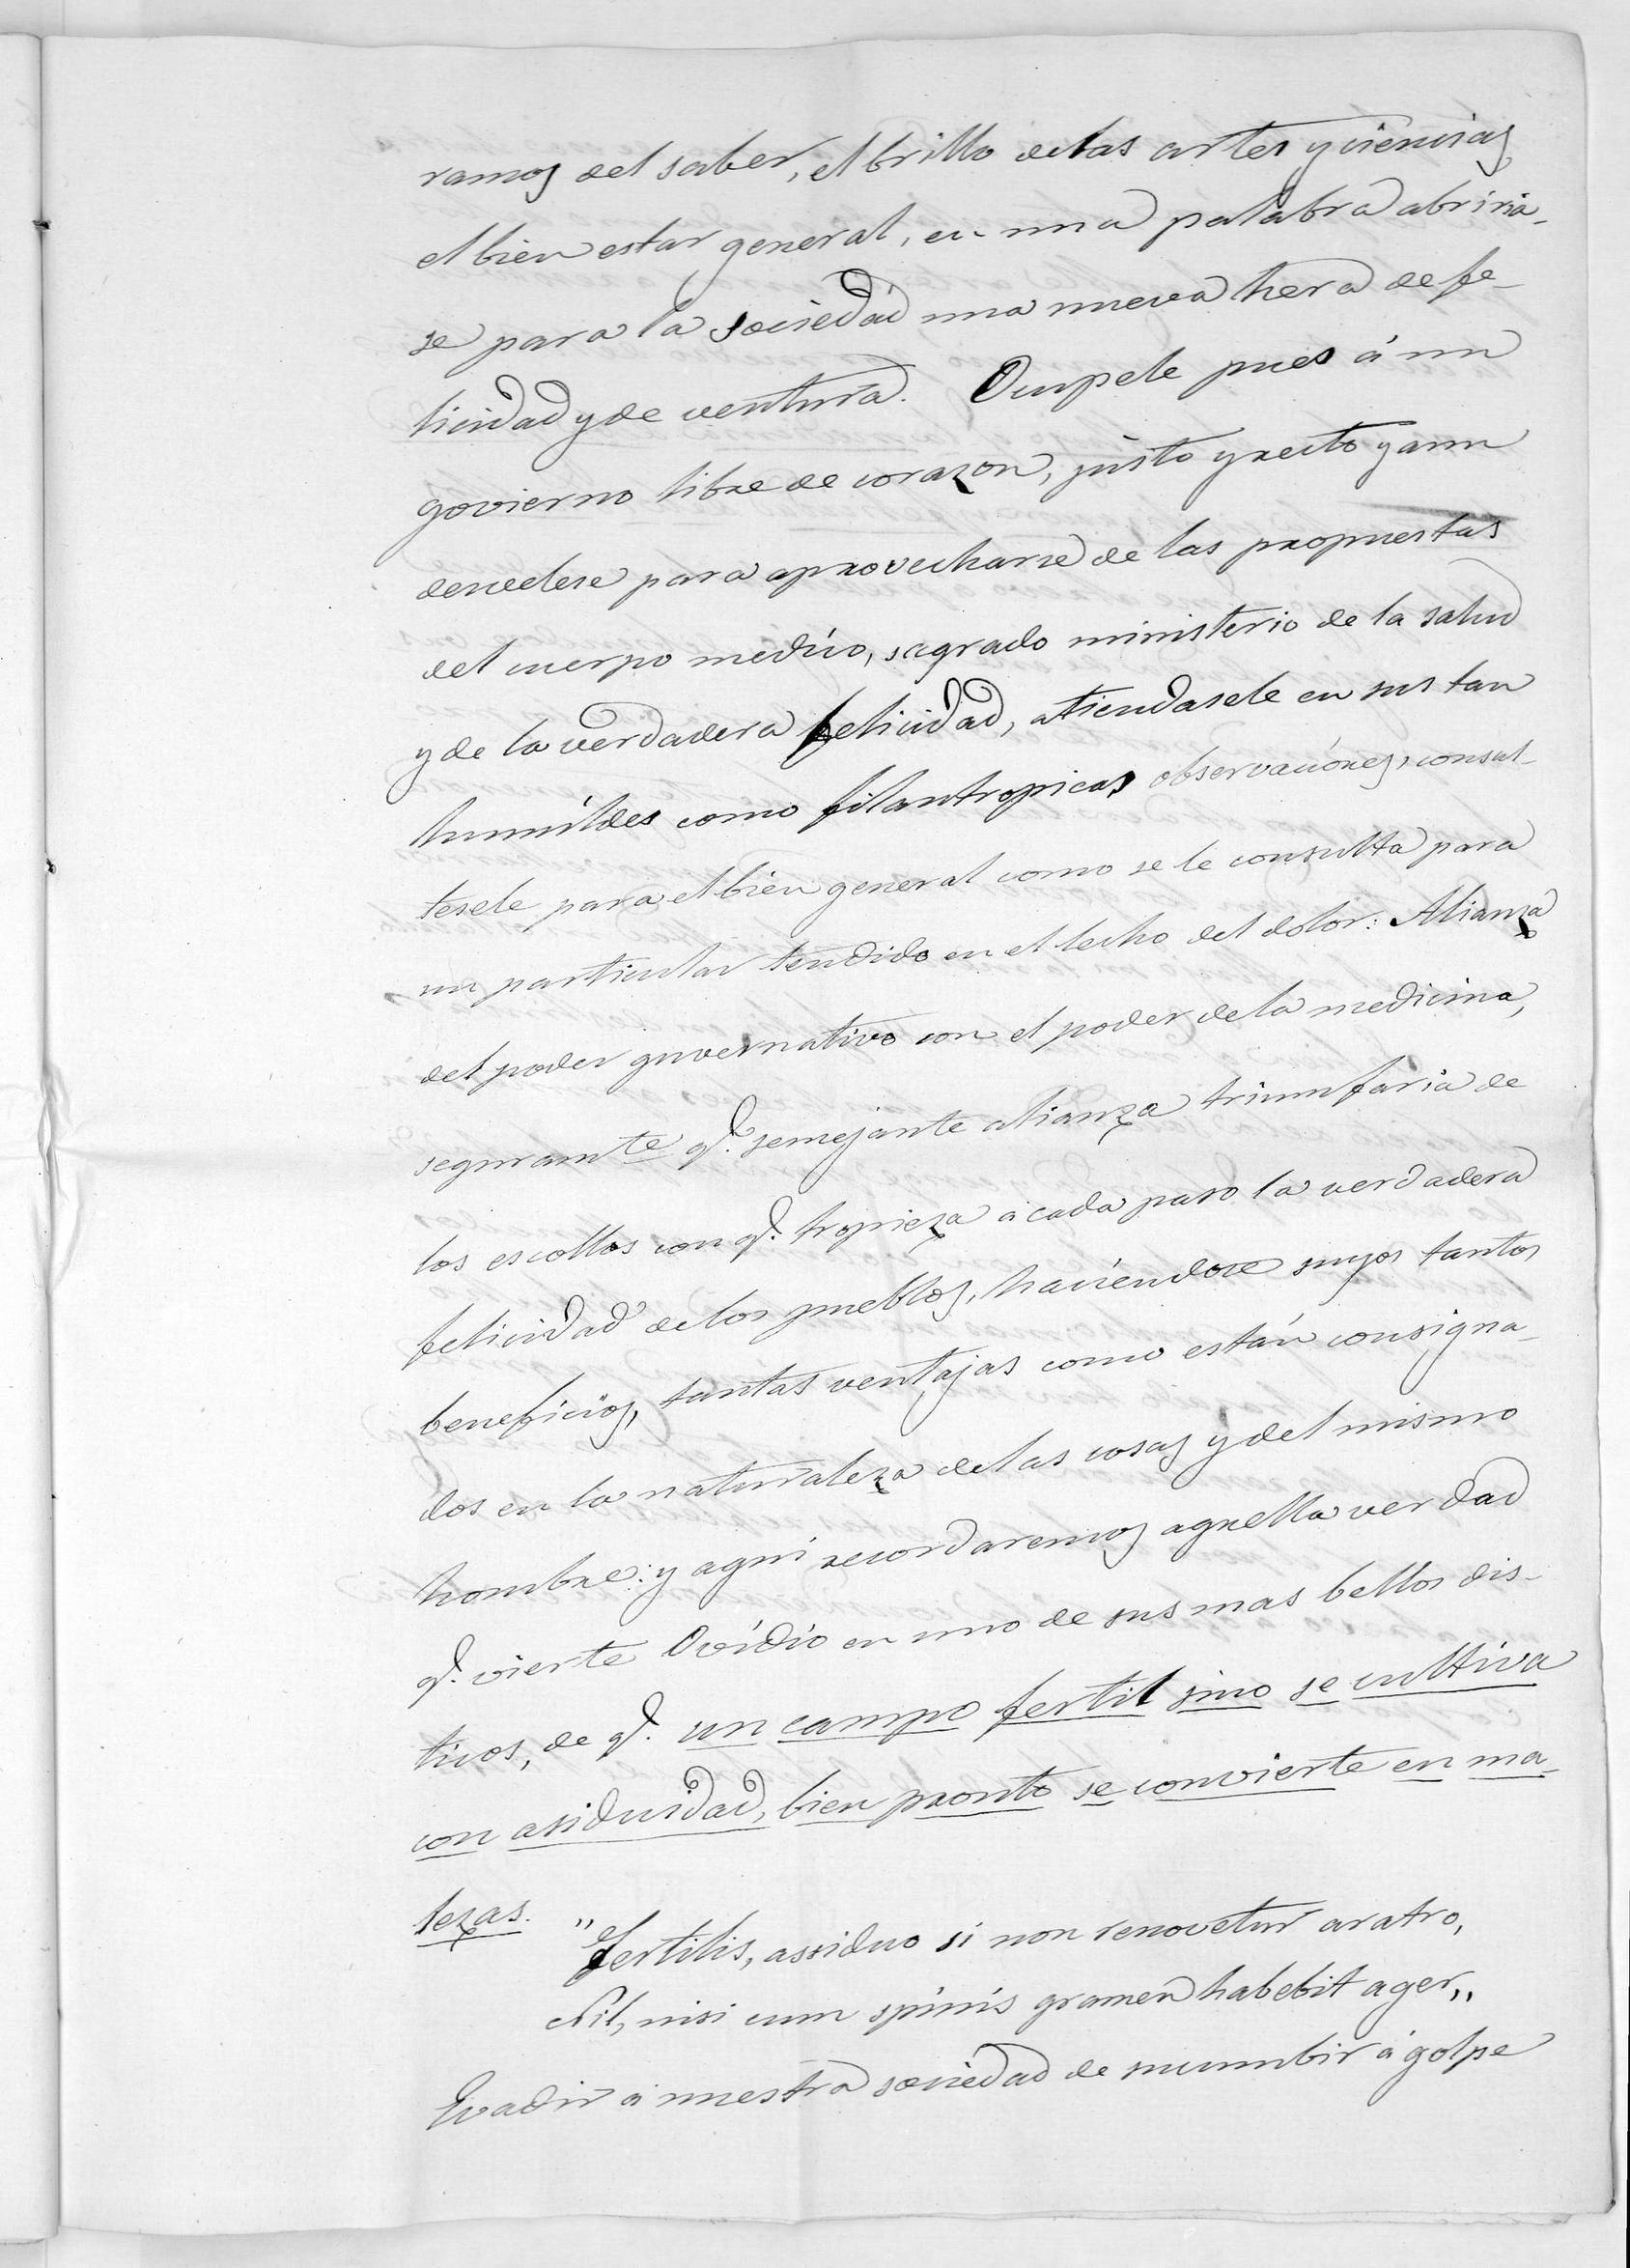 ramos del saber, el brillo de las artes y ciencias
el bien estar general, en una palabra abriria-
se para la sociedád una nueva hera de fe-
licidad y de ventura. Ocupele pues á un
govierno libre de corazon, justo y recto y aun
desvelese para aprovecharse de las propuestas
del cuerpo medico, sagrado ministerio de la salud
y de la verdadera felicidad, atiendasele en sus tan
humildes como filantropicas observaciónes, consul-
tesele para el bien general como se le consulta para
un particular tendido en el lecho del dolor: Alianza
del poder guvernativo con el poder de la medicina,
seguramte q.e semejante alianza triunfaria de
los escollos con q.e tropieza á cada paso la verdadera
felicidad de los pueblos, haciendose suyos tantos
beneficios, tantas ventajas como están consigna-
dos en la naturaleza de las cosas y del mismo
hombre: y aquí recordaremos aquella verdad
q.e vierte Ovídio en uno de sus mas bellos dis-
ticos, de q.e un campo fertil sino se cultiva
con asiduidad, bien pronto se convierte en ma-
lezas.
"Fertilis, assiduo si non renovetur aratro,
Nil, nisi cum spinis gramen habebit ager,,
Evadir á nuestra sociedad de sucumbir á golpe